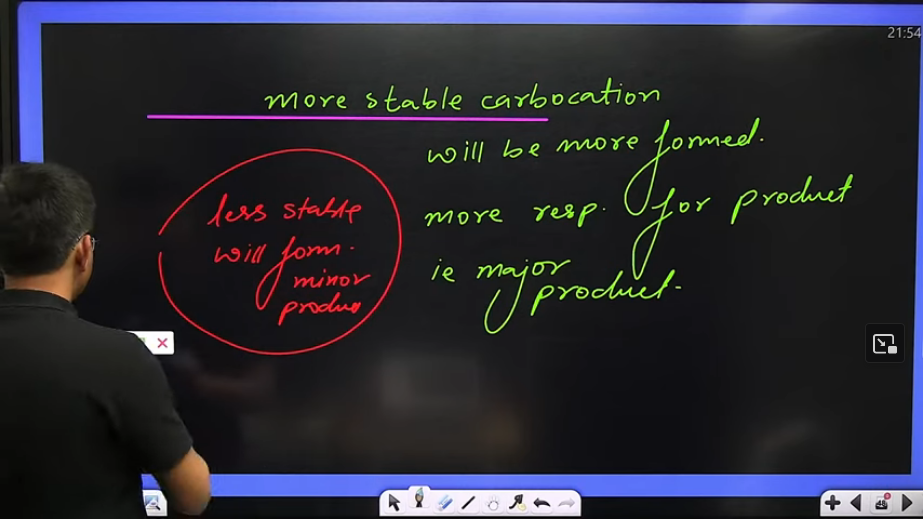 21:54
more stable carbocation
will be more formed.
more resp. for product
ie major
product.
less stable
will form.
minor
produc